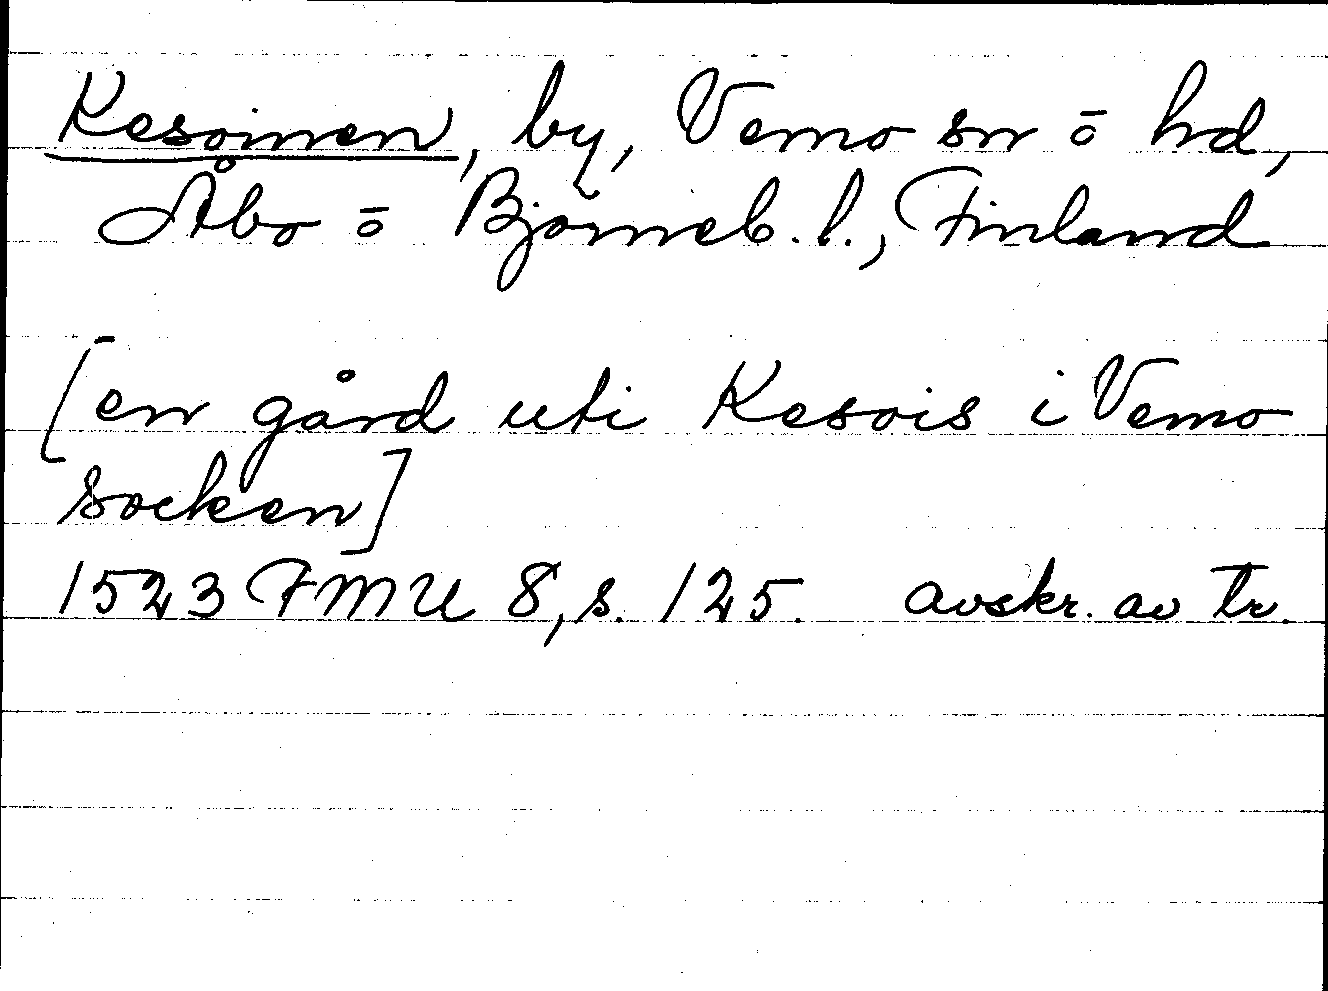 Kesoinen, by, Vemo sn ō hd,
Åbo ō Björneb. l., Finland
[en gård uti Kesois i Vemo
socken]
1523 FMU 8, s. 125. avskr. av tr.